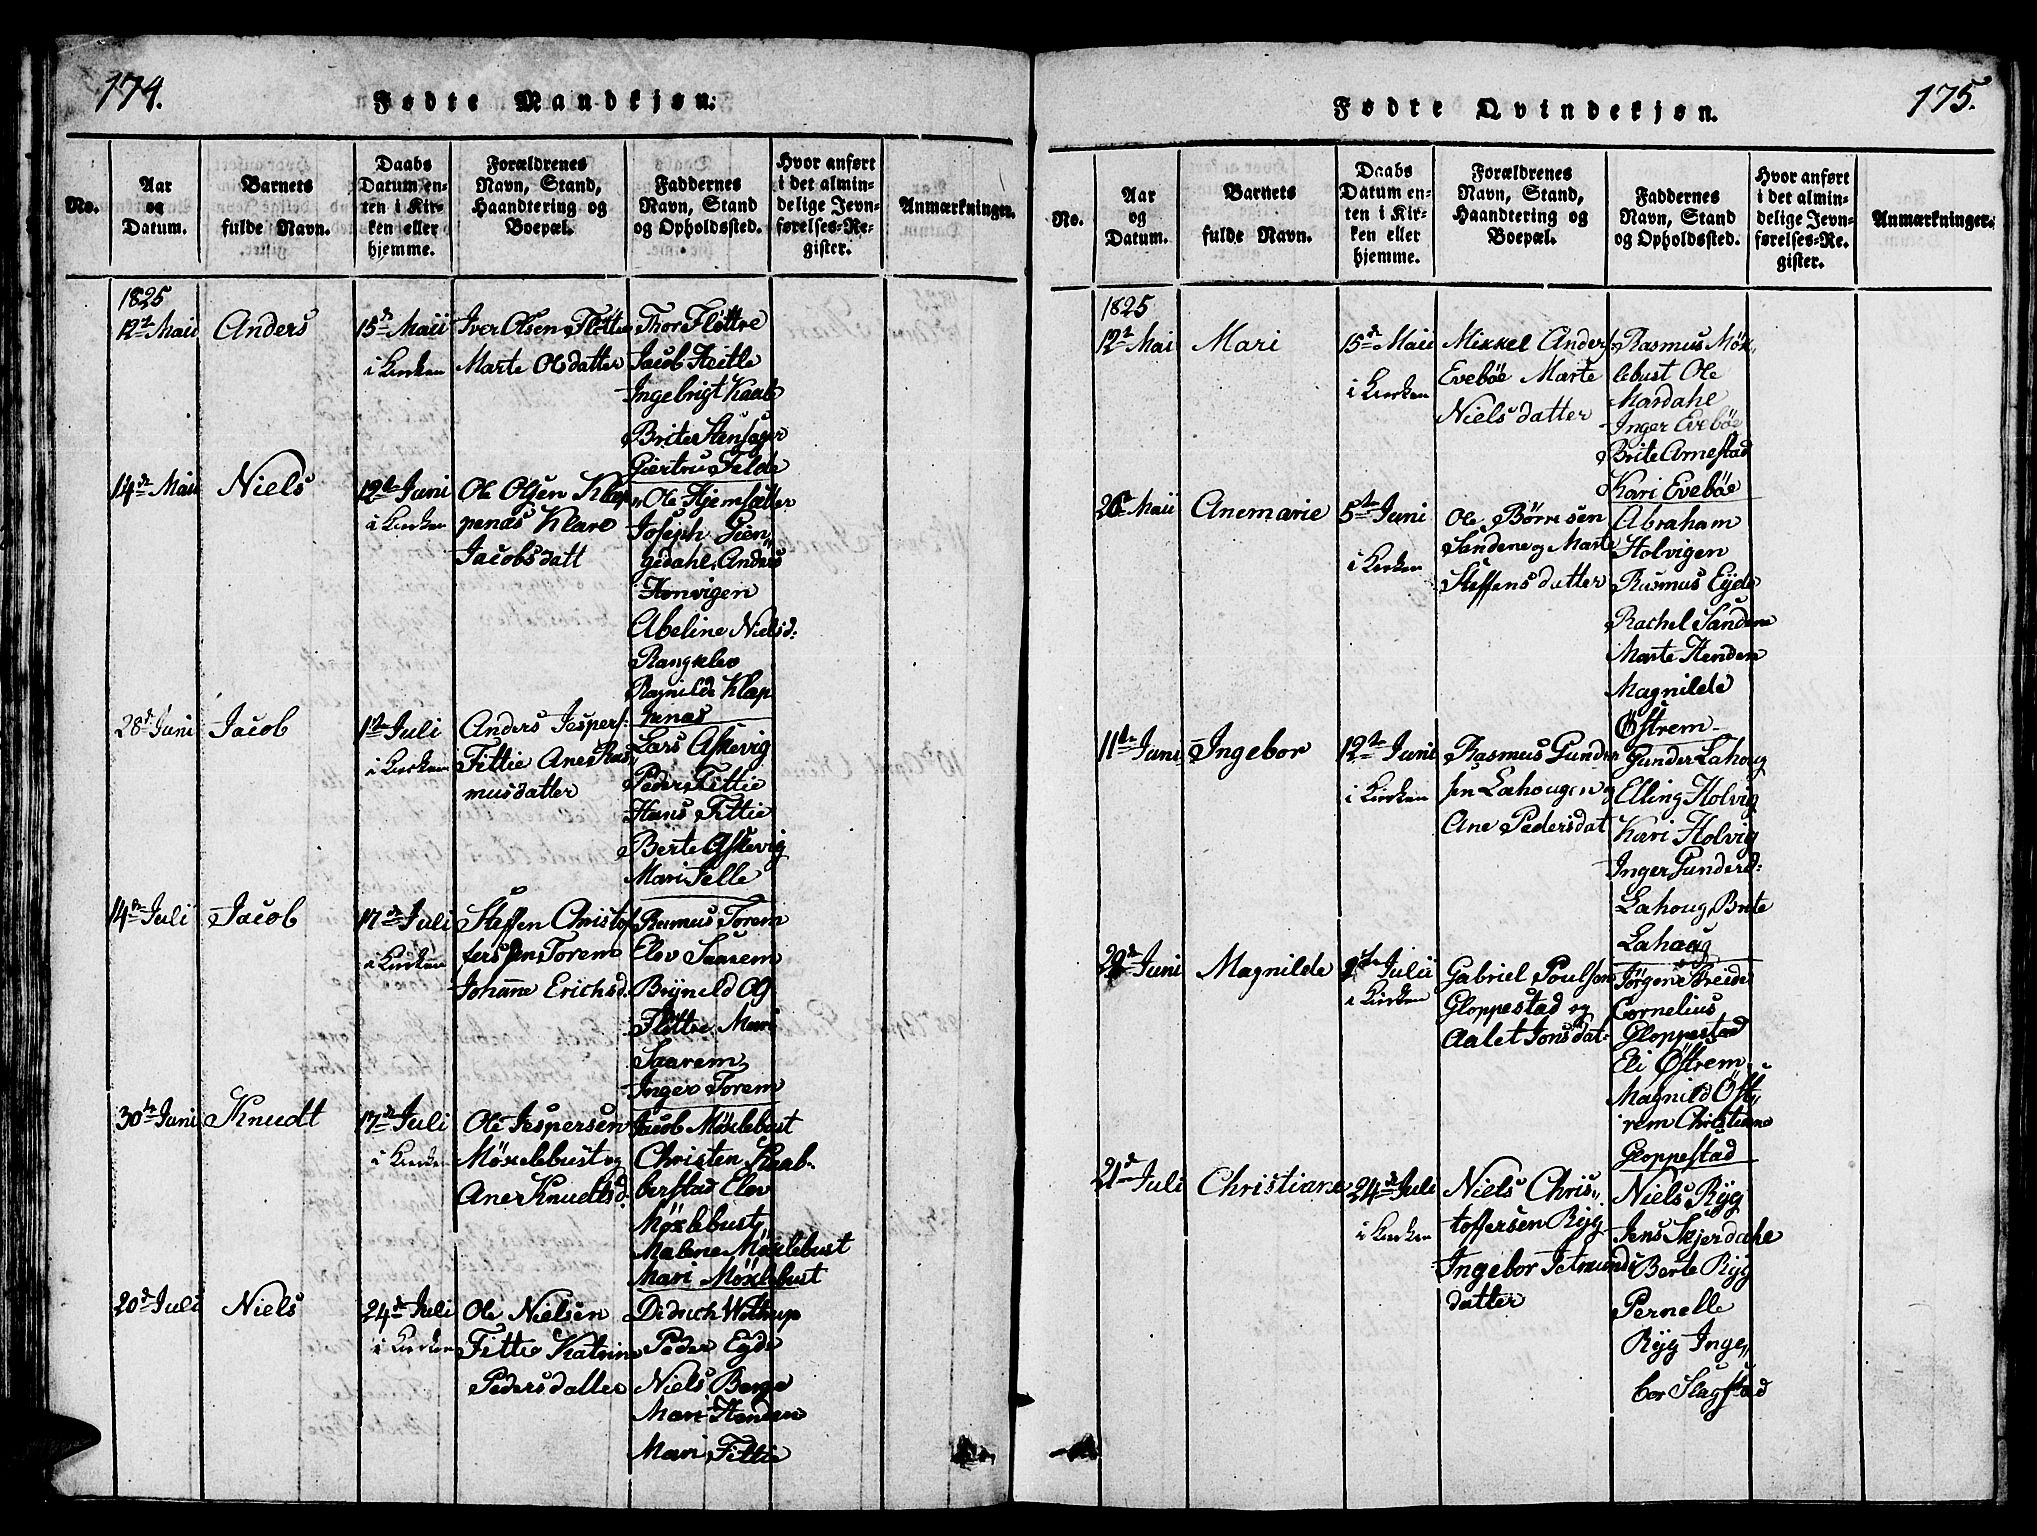 174.
Fødte Mandkjøn.
No.
Aar og Datum.
Barnets fulde Navn.
Daabs Datum enten i Kirken eller hjemme.
Forældrenes Navn, Stand, Haandtering og Boepæl.
Faddernes Navn, Stand og Opholdssted.
Hvor anført i det almindelige Jevnførelses-Register.
Anmærkninger.
1825
12te Maii
Anders
15de Maii
i Kirken
Iver Olsen Fløtte
Marte Olsdatter
Thor Fløttre
Jacob Heitle
Ingebrigt Kaale
Brite Stensager
Giertru Felde
14de Maii
Niels
12te Juni
i Kirken
Ole Olsen Klop
penæs Klare
Jacobsdatt
Ole Hjemsætter
Joseph Gien
gedahl, Anders
Honvigen
Abeline Nielsd:
Rangklev
Ragnilde Klop
penæs
28de Juni
Jacob
1te Juli
i Kirken
Anders Jespers:
Fittie Ane Ras
musdatter
Lars Askevig
Peder Fittie
Hans Fittie
Berte Askevig
Mari Felle
14de Juli
Jacob
17de Juli
i Kirken
Steffen Christof
fersen Torem
Johane Erichsd.
Rasmus Torem
Elov Saarem
Brynild Og
Fløttre Mari
Saarem
Inger Torem
30te Juni
Knudt
17de Juli
i Kirken
Ole Jespersen
Møxlebust og
Ane Knudtsd:
Jacob Møxlebust
Christen Skab-
berstad Elov
Møxlebust,
Malene Møxlebust
Mari Møxlebust
20de Juli
Niels
24de Juli
i Kirken
Ole Nielsen
Fittie Katrine
Pedersdatter
Didrich Woltrup
Peder Eyde
Niels Berge
Mari Henden
Mari Fittie
175.
Fødte Qvindekjøn.
No.
Aar og Datum.
Barnets fulde Navn.
Daabs Datum enten i Kirken eller hjemme.
Forældrenes Navn, Stand, Haandtering og Boepæl.
Faddernes Navn, Stand og Opholdssted.
Hvor anført i det almindelige Jevnførelses-Re. gister.
Anmærkninger.
1825
12te Mai
Mari
15de Maii
i Kirken
Mikkel Anders
Evebøe Marte
Nielsdatter
Rasmus Møx,
lebust Ole
Mardahl
Inger Evebøe
Brite Arnestad
Kari Evebøe
26de Maii
Anemarie
5te Juni
i Kirken
Ole Børresen
Sandene og Marte
Steffensdatter
Abraham
Holvigen
Rasmus Eyde
Rachel Sandene
Marte Henden
Magnilde
Østrem
11te Juni
Ingebor
12te Juni
i Kirken
Rasmus Gunder
sen Lahougen og
Ane Pedersdat
Gunder Lahoug
Elling Holvig
Kari Holvig
Inger Gundersd:
Lahoug, Brite
Lahoug
29de Juni
Magnilde
Julii
i Kirken
Gabriel Poulsen
Gloppestad og
Aalet Jonsdat-
Jørgen Breide
Cornelius
Gloppestad
Eli Østrem
Magnild Øst,,
rem Christiane
Gloppestad
21de Juli
Christiane
24de Juli
i Kirken
Niels Chris,,
toffersen Ryg
Ingebor Jetmunds
datter
Niels Ryg
Jens Skjerdahl
Berte Ryg
Pernelle
Ryg Inge,,
bor Slagstad